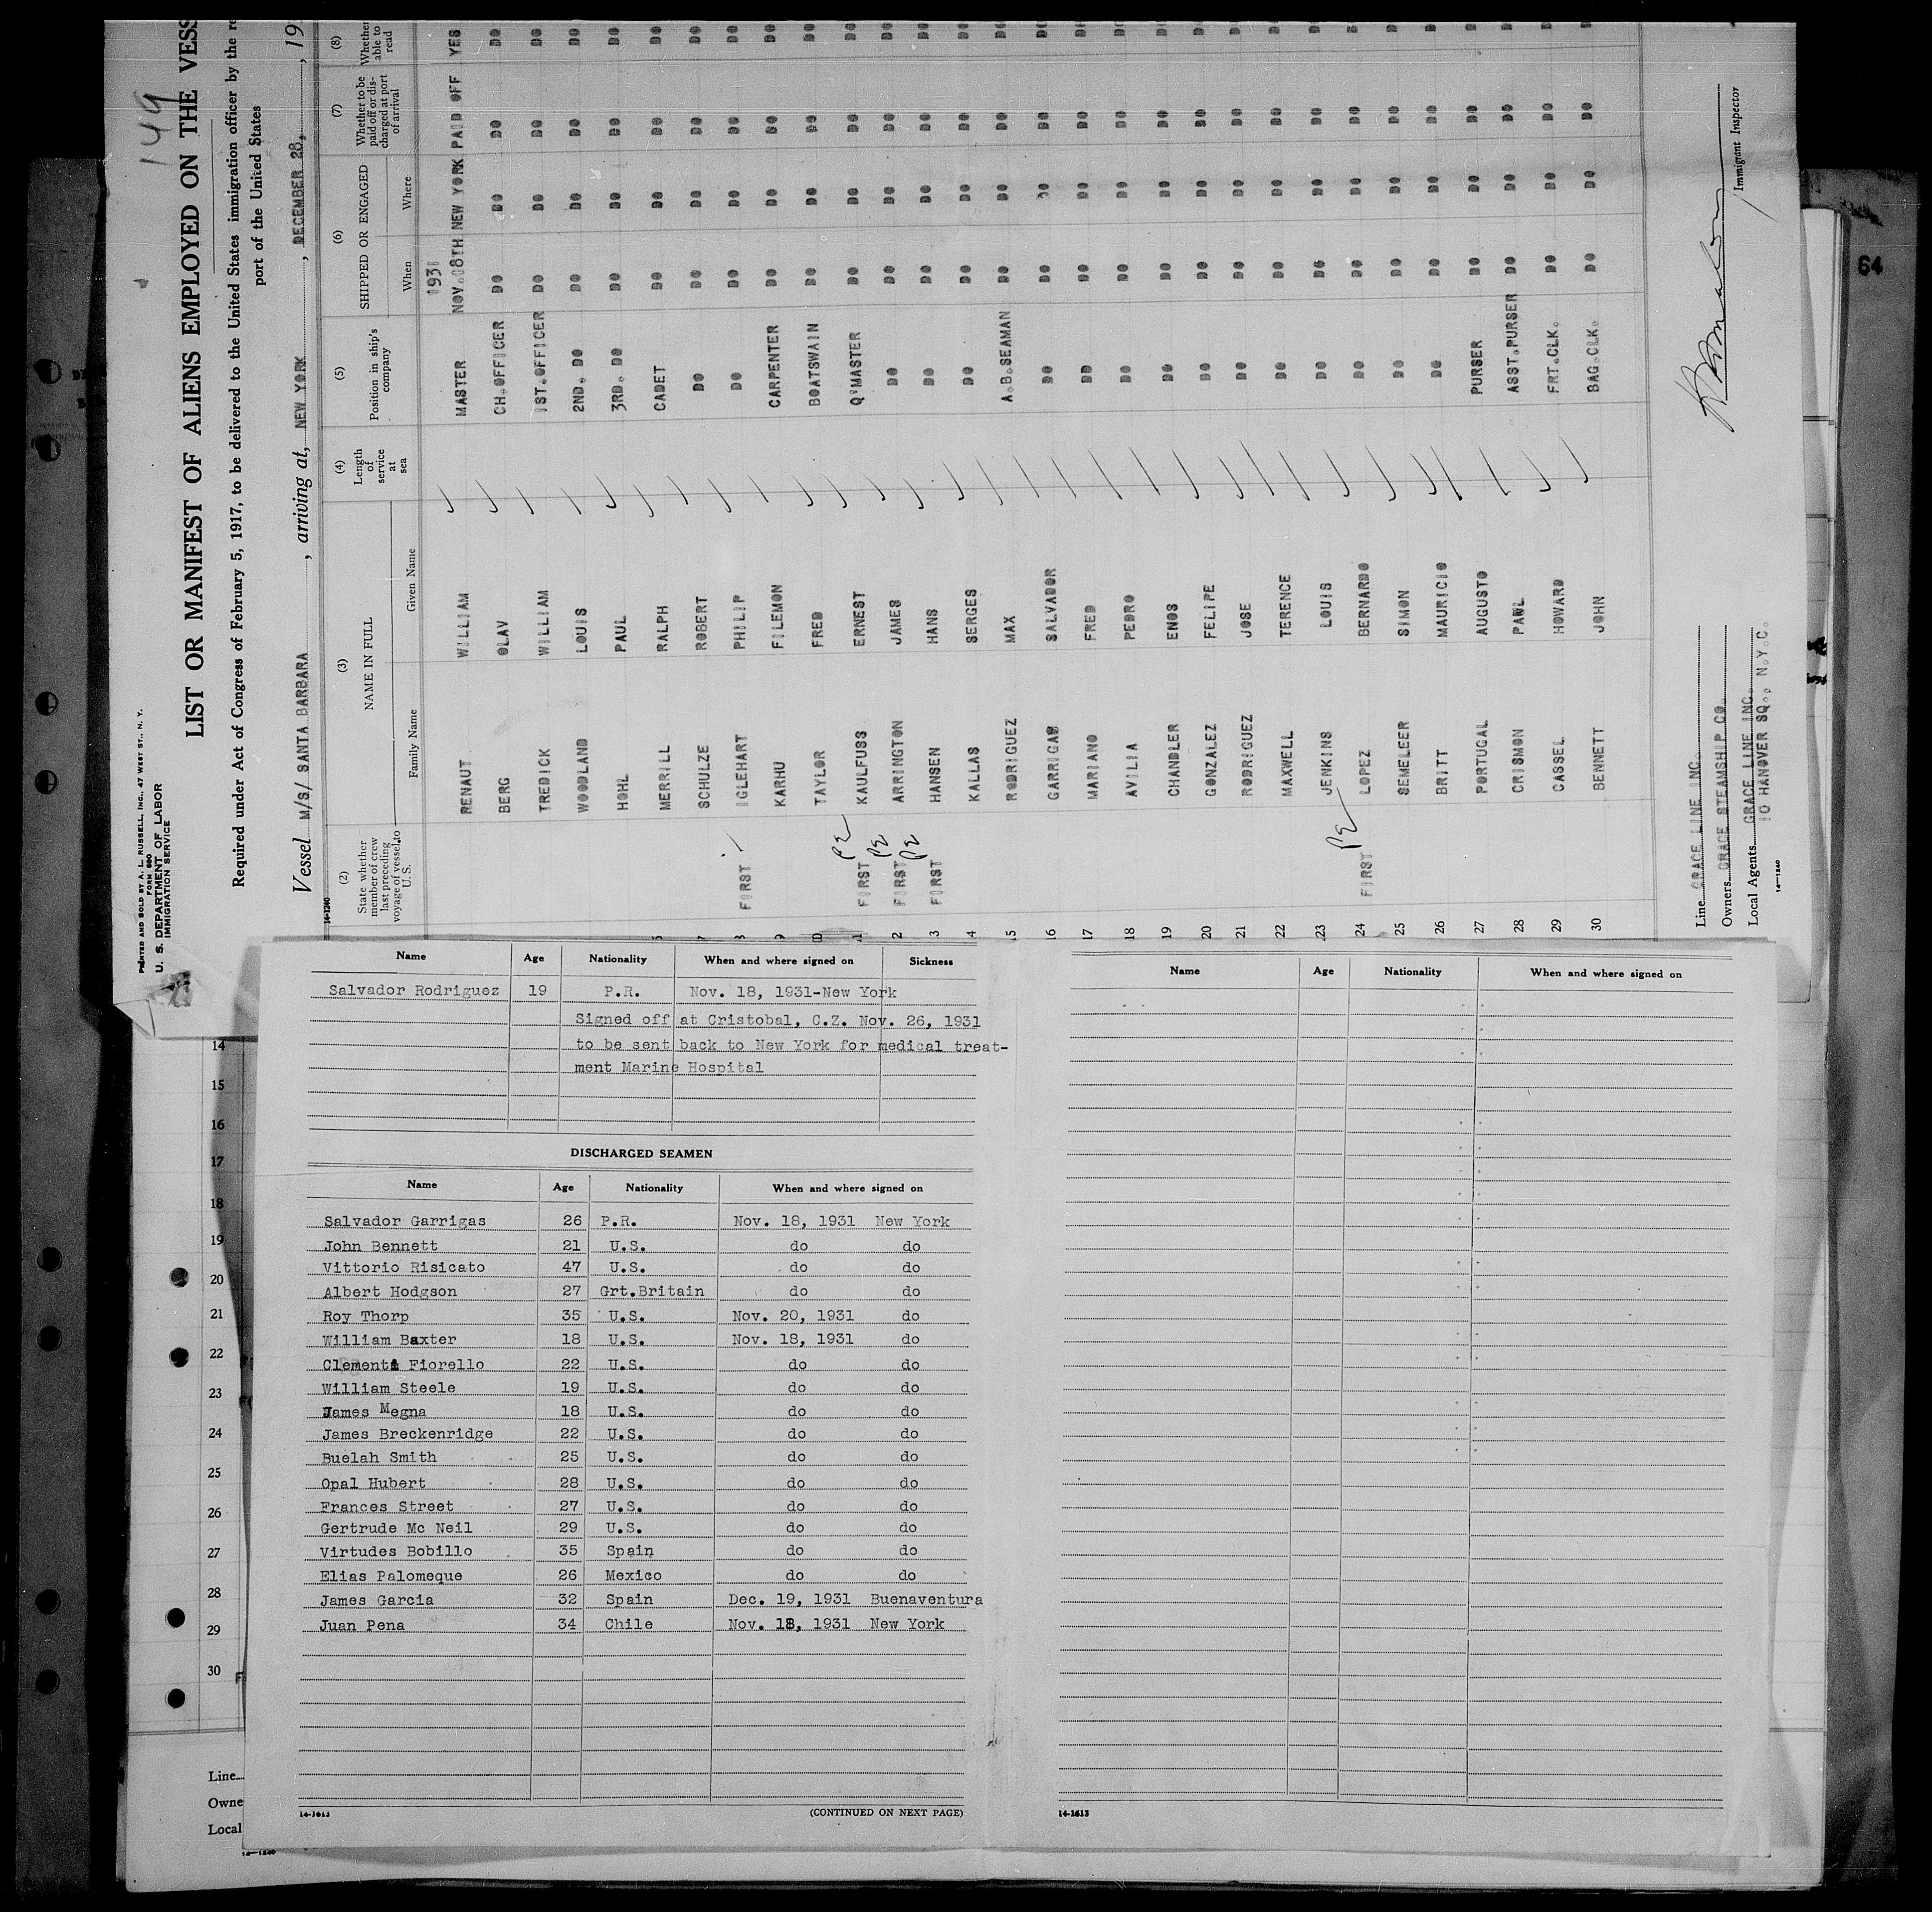 149
PRINTED AND SOLD BY A. L. RUSSELL, INC., 47 WEST ST., N. Y.
FORM 680
U. S. DEPARTMENT OF LABOR
IMMIGRATION SERVICE
LIST OR MANIFEST OF ALIENS EMPLOYED ON THE VESS
Required under Act of Congress of February 5, 1917, to be delivered to the United States immigration officer by the re
port of the United States
Vessel M/S/ SANTA BARBARA, arriving at, NEW YORK, DECEMBER 28, 19
14-1240
(2) State whether member of crew last preceding voyage of vessel to U. S. (3) NAME IN FULL Family Name Given Name (4) Length of service at sea (5) Position in ship's company (6) SHIPPED OR ENGAGED When Where (7) Whether to be paid off or discharged at port of arrival (8) Whether able to read
1931
RENAUT WILLIAM MASTER NOV.18TH NEW YORK PAID OFF YES
BERG OLAV CH.OFFICER DO DO DO DO
TREDICK WILLIAM 1ST.OFFICER DO DO DO DO
WOODLAND LOUIS 2ND. DO DO DO DO DO
HOHL PAUL 3RD. DO DO DO DO DO
MERRILL RALPH CADET DO DO DO DO
7 SCHULZE ROBERT DO DO DO DO DO
8 FIRST IGLEHART PHILIP DO DO DO DO DO
9 KARHU FILEMON CARPENTER DO DO DO DO
0 TAYLOR FRED BOATSWAIN DO DO DO DO
1 FIRST PE KAULFUSS ERNEST Q'MASTER DO DO DO DO
2 FIRST PE ARRINGTON JAMES DO DO DO DO DO
3 FIRST PE HANSEN HANS DO DO DO DO DO
4 KALLAS SERGES DO DO DO DO DO
15 RODRIGUEZ MAX A.B.SEAMAN DO DO DO DO
16 GARRIGAS SALVADOR DO DO DO DO DO
17 MARIANO FRED DO DO DO DO DO
18 AVILIA PEDRO DO DO DO DO DO
19 CHANDLER ENOS DO DO DO DO DO
20 GONZALEZ FELIPE DO DO DO DO DO
21 RODRIGUEZ JOSE DO DO DO DO DO
22 MAXWELL TERENCE DO DO DO DO DO
23 JENKINS LOUIS DO DO DO DO DO
24 FIRST PE LOPEZ BERNARDO DO DO DO DO DO
25 SEMELEER SIMON DO DO DO DO DO
26 BRITT MAURICIO DO DO DO DO DO
27 PORTUGAL AUGUSTO PURSER DO DO DO DO
28 CRISMON PAUL ASST.PURSER DO DO DO DO
29 CASSEL HOWARD FRT.CLK. DO DO DO DO
30 BENNETT JOHN BAG.CLK. DO DO DO DO
Line GRACE LINE INC.
Owners GRACE STEAMSHIP CO.
Local Agents GRACE LINE INC.
10 HANOVER SQ., N.Y.C.
14-1240
Immigrant Inspector
64
Name Age Nationality When and where signed on Sickness
Salvador Rodriguez 19 P.R. Nov. 18, 1931-New York
Signed off at Cristobal, C.Z. Nov. 26, 1931
to be sent back to New York for medical treat-
ment Marine Hospital
DISCHARGED SEAMEN
Name Age Nationality When and where signed on
Salvador Garrigas 26 P.R. Nov. 18, 1931 New York
John Bennett 21 U.S. do do
Vittorio Risicato 47 U.S. do do
Albert Hodgson 27 Grt.Britain do do
Roy Thorp 35 U.S. Nov. 20, 1931 do
William Baxter 18 U.S. Nov. 18, 1931 do
Clementi Fiorello 22 U.S. do do
William Steele 19 U.S. do do
James Megna 18 U.S. do do
James Breckenridge 22 U.S. do do
Buelah Smith 25 U.S. do do
Opal Hubert 28 U.S. do do
Frances Street 27 U.S. do do
Gertrude Mc Neil 29 U.S. do do
Virtudes Bobillo 35 Spain do do
Elias Palomeque 26 Mexico do do
James Garcia 32 Spain Dec. 19, 1931 Buenaventura
Juan Pena 34 Chile Nov. 18, 1931 New York
14-1613
(CONTINUED ON NEXT PAGE)
Name Age Nationality When and where signed on
14-1613
14
15
16
17
18
19
20
21
22
23
24
25
26
27
28
29
30
Line
Owne
Local
14-1240